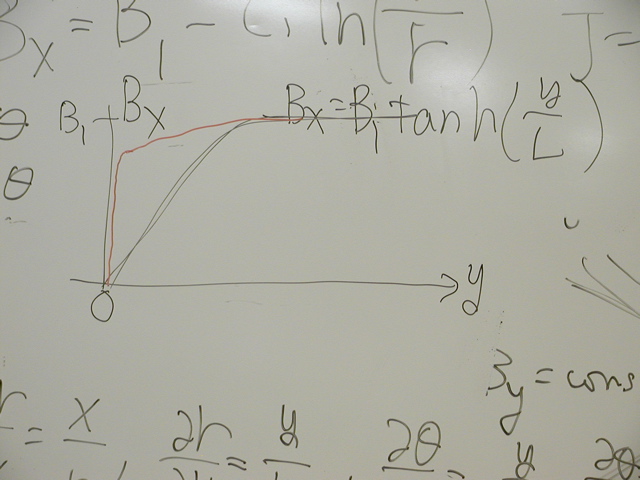 Bx = B1 - C1 ln(—/r) J =
θ B1 Bx Bx = B1 tanh(y/L)
θ
O y
ξy = cons
r = x ∂r = y ∂θ = y ∂θ